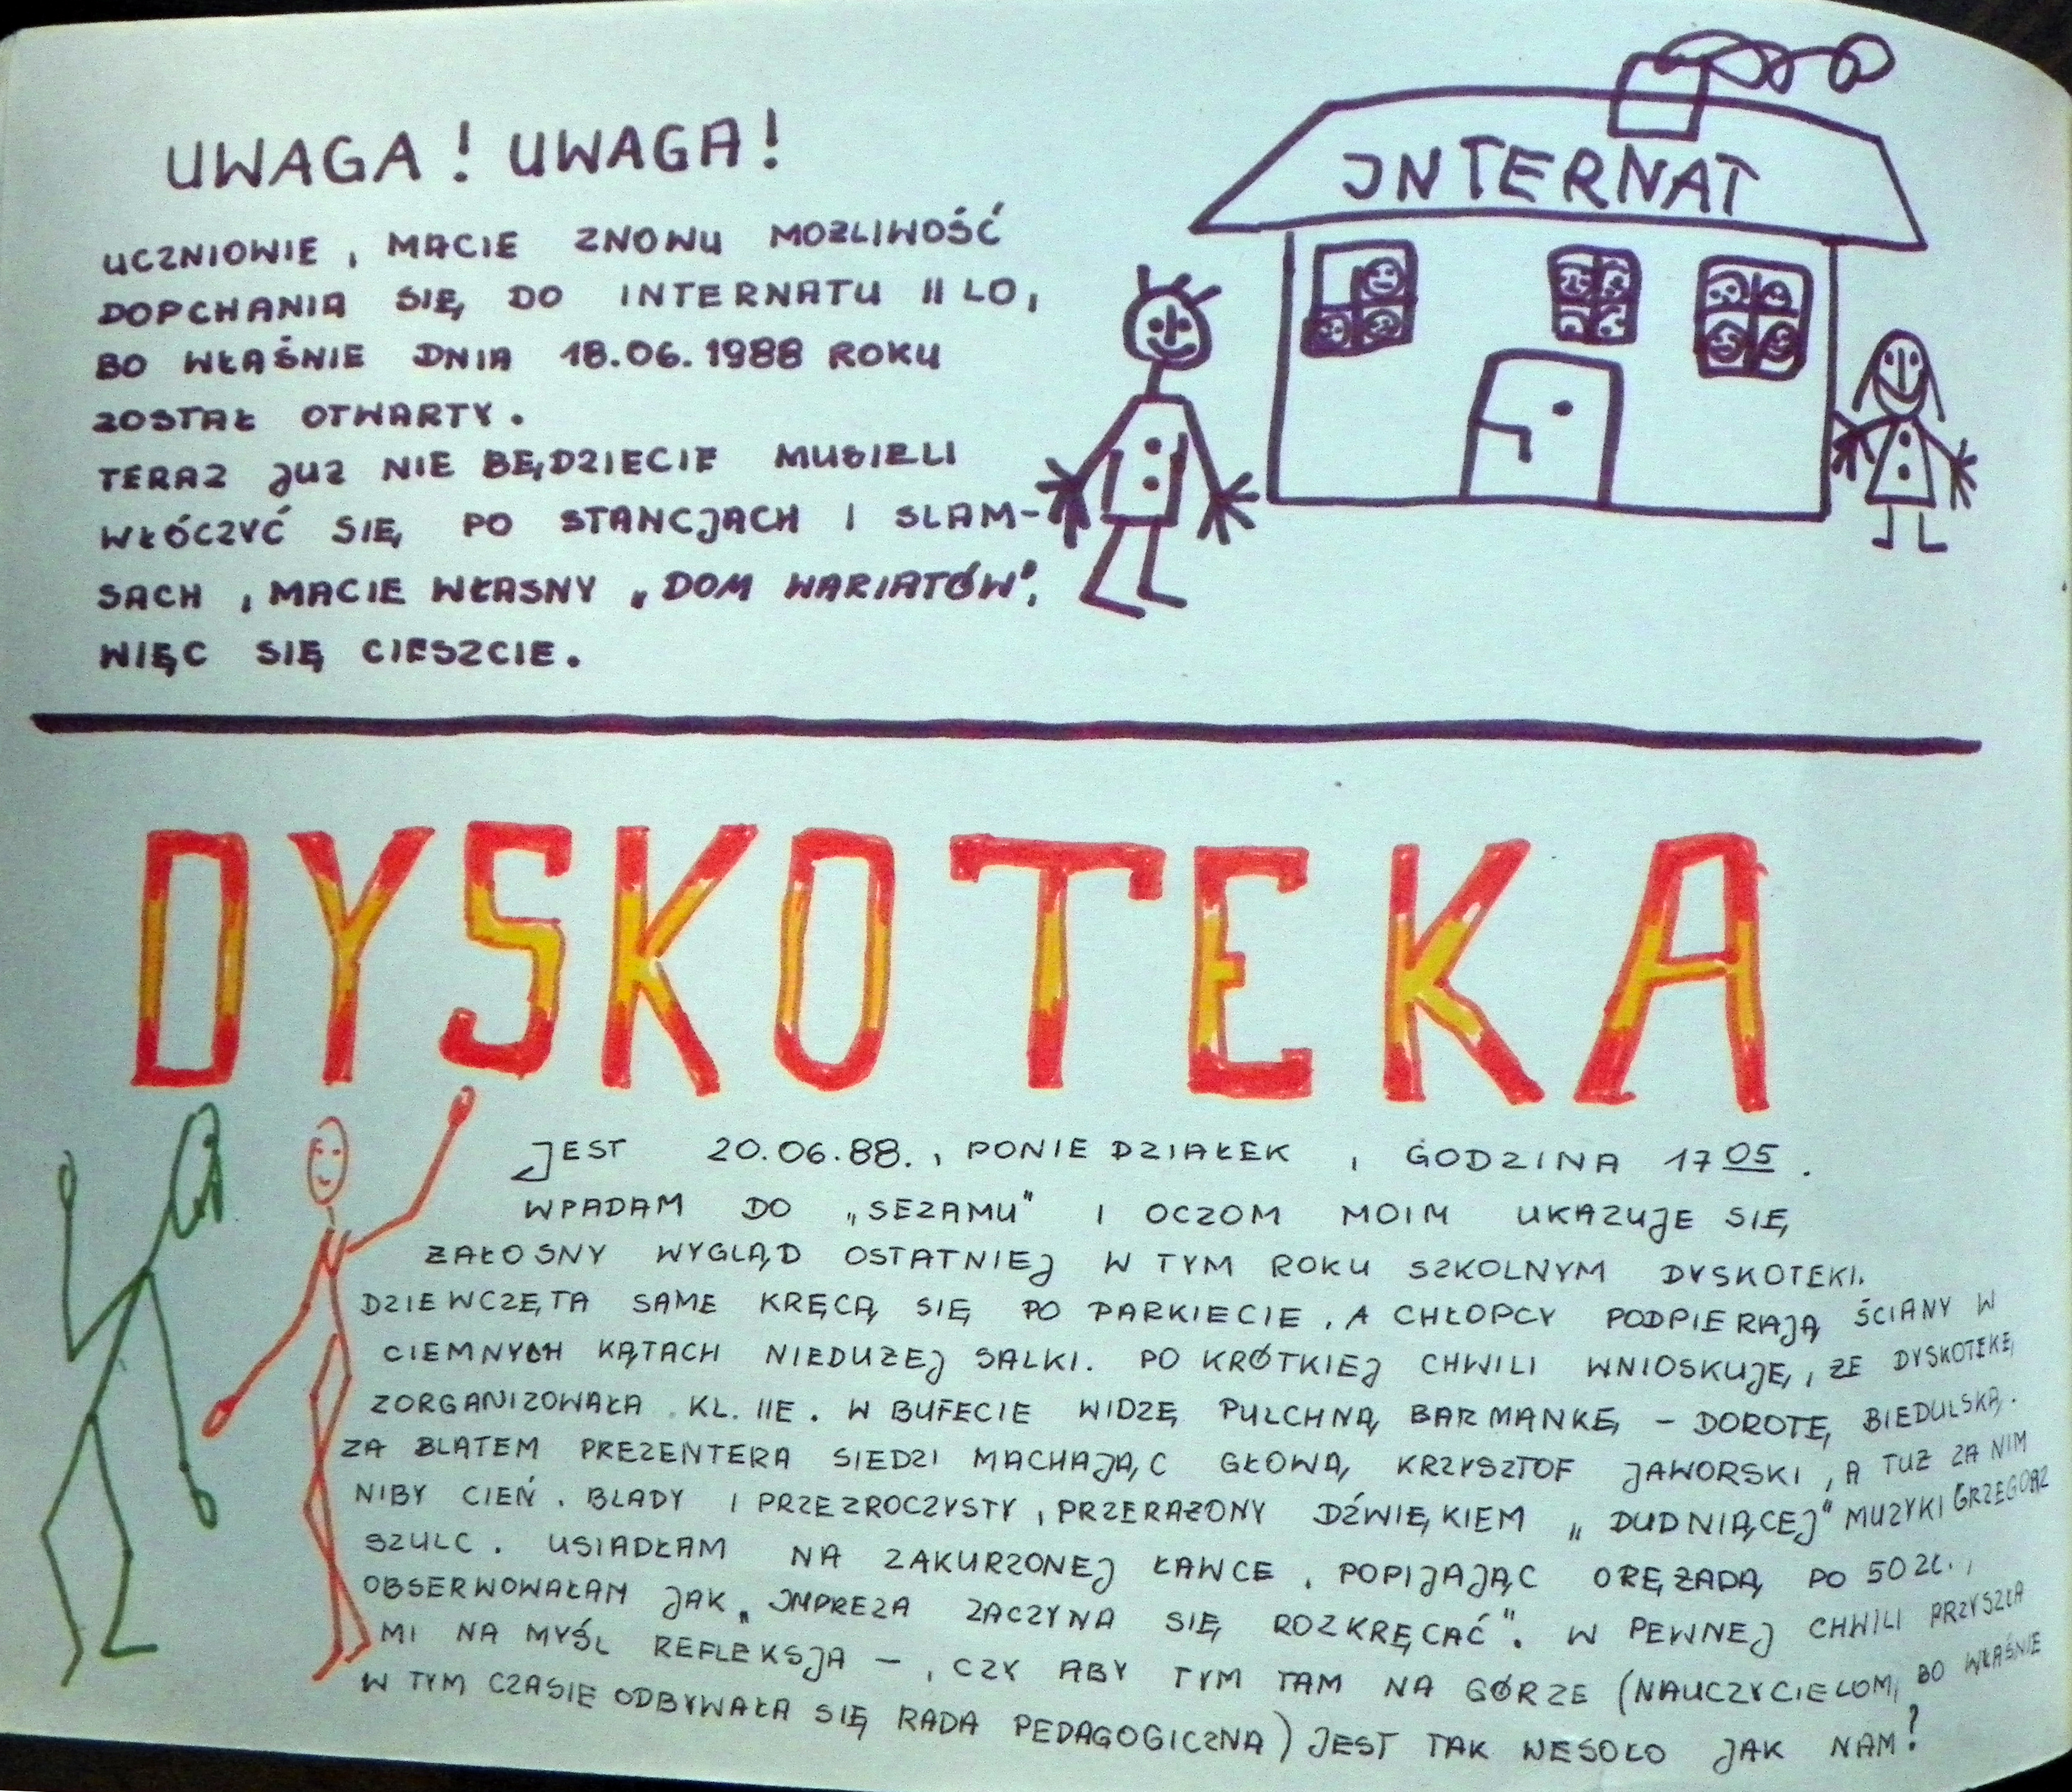 UWAGA! UWAGA!
UCZNIOWIE, MACIE ZNOWU MOŻLIWOŚĆ
DOPCHANIA SIĘ DO INTERNATU II LO,
BO WŁAŚNIE DNIA 18.06.1988 ROKU
ZOSTAŁ OTWARTY.
TERAZ JUŻ NIE BĘDZIECIE MUSIELI
WŁÓCZYĆ SIĘ PO STANCJACH I SLAM-
SACH, MACIE WŁASNY „DOM WARIATÓW",
WIĘC SIĘ CIESZCIE.
INTERNAT
DYSKOTEKA
JEST 20.06.88., PONIEDZIAŁEK, GODZINA 17 05.
WPADAM DO „SEZAMU" I OCZOM MOIM UKAZUJE SIĘ
ŻAŁOSNY WYGLĄD OSTATNIEJ W TYM ROKU SZKOLNYM DYSKOTEKI.
DZIEWCZĘTA SAME KRĘCĄ SIĘ PO PARKIECIE, A CHŁOPCY PODPIERAJĄ ŚCIANY W
CIEMNYCH KĄTACH NIEDUŻEJ SALKI. PO KRÓTKIEJ CHWILI WNIOSKUJĘ, ŻE DYSKOTEKĘ
ZORGANIZOWAŁA KL. IIE. W BUFECIE WIDZĘ PULCHNĄ BARMANKĘ – DOROTĘ BIEDULSKĄ.
ZA BLATEM PREZENTERA SIEDZI MACHAJĄC GŁOWĄ KRZYSZTOF JAWORSKI, A TUŻ ZA NIM
NIBY CIEŃ. BLADY I PRZEZROCZYSTY, PRZERAŻONY DŹWIĘKIEM „DUDNIĄCEJ" MUZYKI GRZEGORZ
SZULC. USIADŁAM NA ZAKURZONEJ ŁAWCE, POPIJAJĄC ORĘŻADĄ PO 50 ZŁ.,
OBSERWOWAŁAM JAK „IMPREZA ZACZYNA SIĘ ROZKRĘCAĆ". W PEWNEJ CHWILI PRZYSZŁA
MI NA MYŚL REFLEKSJA –, CZY ABY TYM TAM NA GÓRZE (NAUCZYCIELOM, BO WŁAŚNIE
W TYM CZASIE ODBYWAŁA SIĘ RADA PEDAGOGICZNA) JEST TAK WESOŁO JAK NAM?